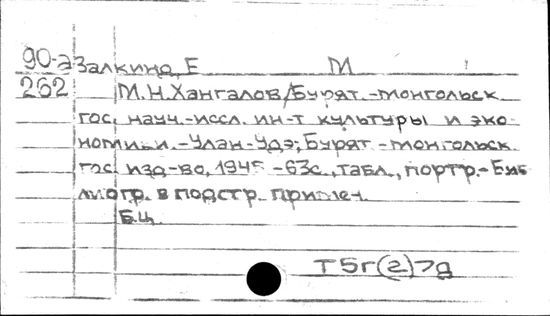 90-а Залкинд, Е М
262 М.Н.Хангалов/Бурят.-монгольск
гос. науч.-иссл. ин-т культуры и эко-
номики.-Улан-Удэ; Бурят.-монгольск.
гос. изд-во, 1945 -63с., табл., портр.-Биб
лиогр. в подстр. примеч.
Б.ц.
Т5г(2)7д